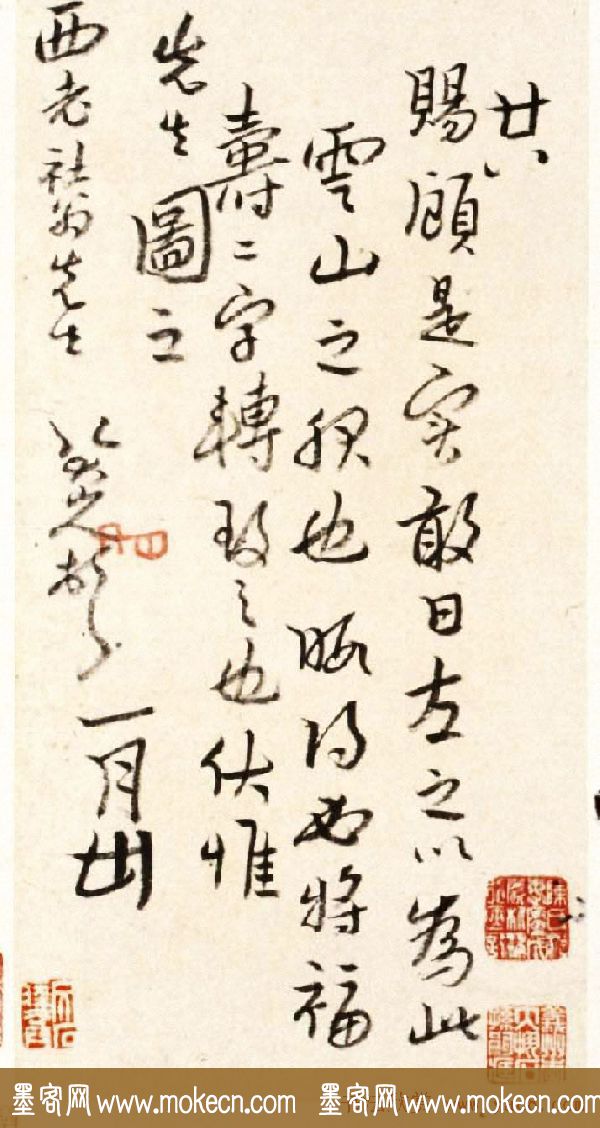 廿八
賜顧是实敢日左之以為此
雲山之役也晤得必将福
壽二字轉致之也伏惟
先生圖之
西老社翁先生 頓
一月廿
墨客网www.mokecn.com 墨客网www.mokecn.com